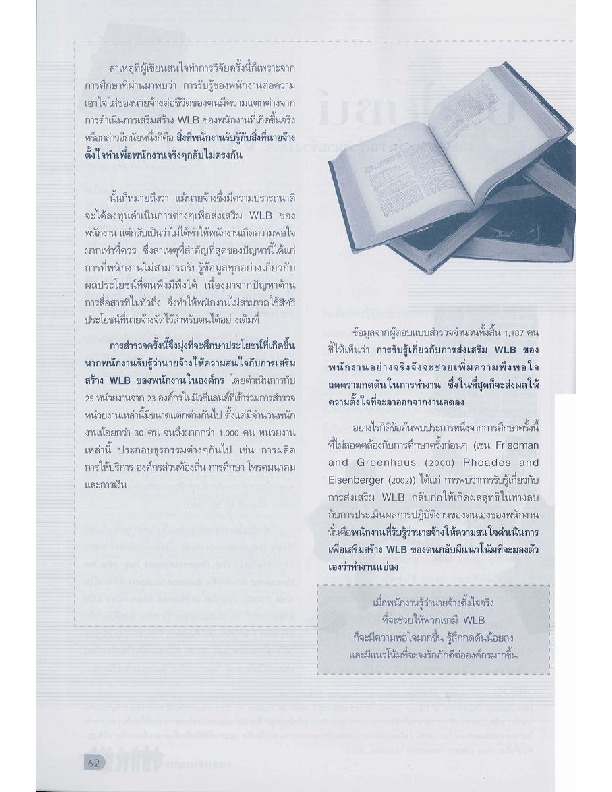 สาเหตุที่ผู้เขียนสนใจทำการวิจัยครั้งนี้ก็เพราะจาก
การศึกษาที่ผ่านมาพบว่า การรับรู้ของพนักงานต่อความ
เอาใจใส่ของนายจ้างต่อชีวิตของตนมีความแตกต่างจาก
การดำเนินการเสริมสร้าง WLB ของพนักงานที่เกิดขึ้นจริง
หรือกล่าวอีกนัยหนึ่งก็คือ สิ่งที่พนักงานรับรู้กับสิ่งที่นายจ้าง
ตั้งใจทำเพื่อพนักงานจริงๆกลับไม่ตรงกัน
นั่นก็หมายถึงว่า แม้นายจ้างซึ่งมีความปรารถนาดี
จะได้ลงทุนดำเนินการต่างๆเพื่อส่งเสริม WLB ของ
พนักงาน แต่กลับเป็นว่าไม่ได้ทำให้พนักงานเกิดความพอใจ
มากเท่าที่ควร ซึ่งสาเหตุที่สำคัญที่สุดของปัญหานี้ได้แก่
การที่พนักงานไม่สามารถรับรู้ข้อมูลทุกอย่างเกี่ยวกับ
ผลประโยชน์ที่ตนพึงมีพึงได้ เนื่องมาจากปัญหาด้าน
การสื่อสารที่ไม่ทั่วถึง จึงทำให้พนักงานไม่สามารถใช้สิทธิ
ประโยชน์ที่นายจ้างจัดไว้สำหรับตนได้อย่างเต็มที่
การสำรวจครั้งนี้จึงมุ่งที่จะศึกษาประโยชน์ที่เกิดขึ้น
หากพนักงานรับรู้ว่านายจ้างให้ความสนใจกับการเสริม
สร้าง WLB ของพนักงานในองค์กร โดยดำเนินการกับ
25 หน่วยงานจาก 23 องค์กรในนิวซีแลนด์ที่เข้าร่วมการสำรวจ
หน่วยงานเหล่านี้มีขนาดแตกต่างกันไป ตั้งแต่มีจำนวนพนัก
งานน้อยกว่า 30 คน จนถึงมากกว่า 1,000 คน หน่วยงาน
เหล่านี้ ประกอบธุรกรรมต่างๆกันไป เช่น การผลิต
การให้บริการ องค์กรส่วนท้องถิ่น การศึกษา โทรคมนาคม
และการเงิน
ข้อมูลจากผู้ตอบแบบสำรวจจำนวนทั้งสิ้น 1,187 คน
ชี้ให้เห็นว่า การรับรู้เกี่ยวกับการส่งเสริม WLB ของ
พนักงานอย่างจริงจังจะช่วยเพิ่มความพึงพอใจ
ลดความกดดันในการทำงาน ซึ่งในที่สุดก็จะส่งผลให้
ความตั้งใจที่จะลาออกจากงานลดลง
อย่างไรก็ได้ข้อค้นพบประการหนึ่งจากการศึกษาครั้งนี้
ที่ไม่สอดคล้องกับการศึกษาครั้งก่อนๆ (เช่น Friedman
and Greenhaus (2000) Rhoades and
Eisenberger (2002)) ได้แก่ การพบว่าการรับรู้เกี่ยวกับ
การส่งเสริม WLB กลับก่อให้เกิดผลสุทธิในทางลบ
กับการประเมินผลการปฏิบัติงานของตนเองของพนักงาน
นั่นคือพนักงานที่รับรู้ว่านายจ้างให้ความสนใจดำเนินการ
เพื่อเสริมสร้าง WLB ของตนกลับมีแนวโน้มที่จะมองตัว
เองว่าทำงานแย่ลง
เมื่อพนักงานรู้ว่านายจ้างตั้งใจจริง
ที่จะช่วยให้พวกเขามี WLB
ก็จะมีความพอใจมากขึ้น รู้สึกกดดันน้อยลง
และมีแนวโน้มที่จะจงรักภักดีต่อองค์กรมากขึ้น